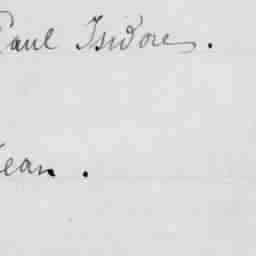 Paul Isidore.
Jean.